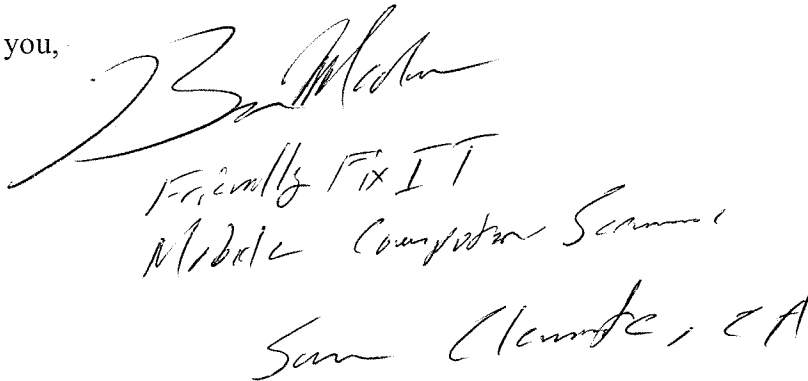 you,
Friendly Fix IT
Mobile Computer Services
San Clemente, CA